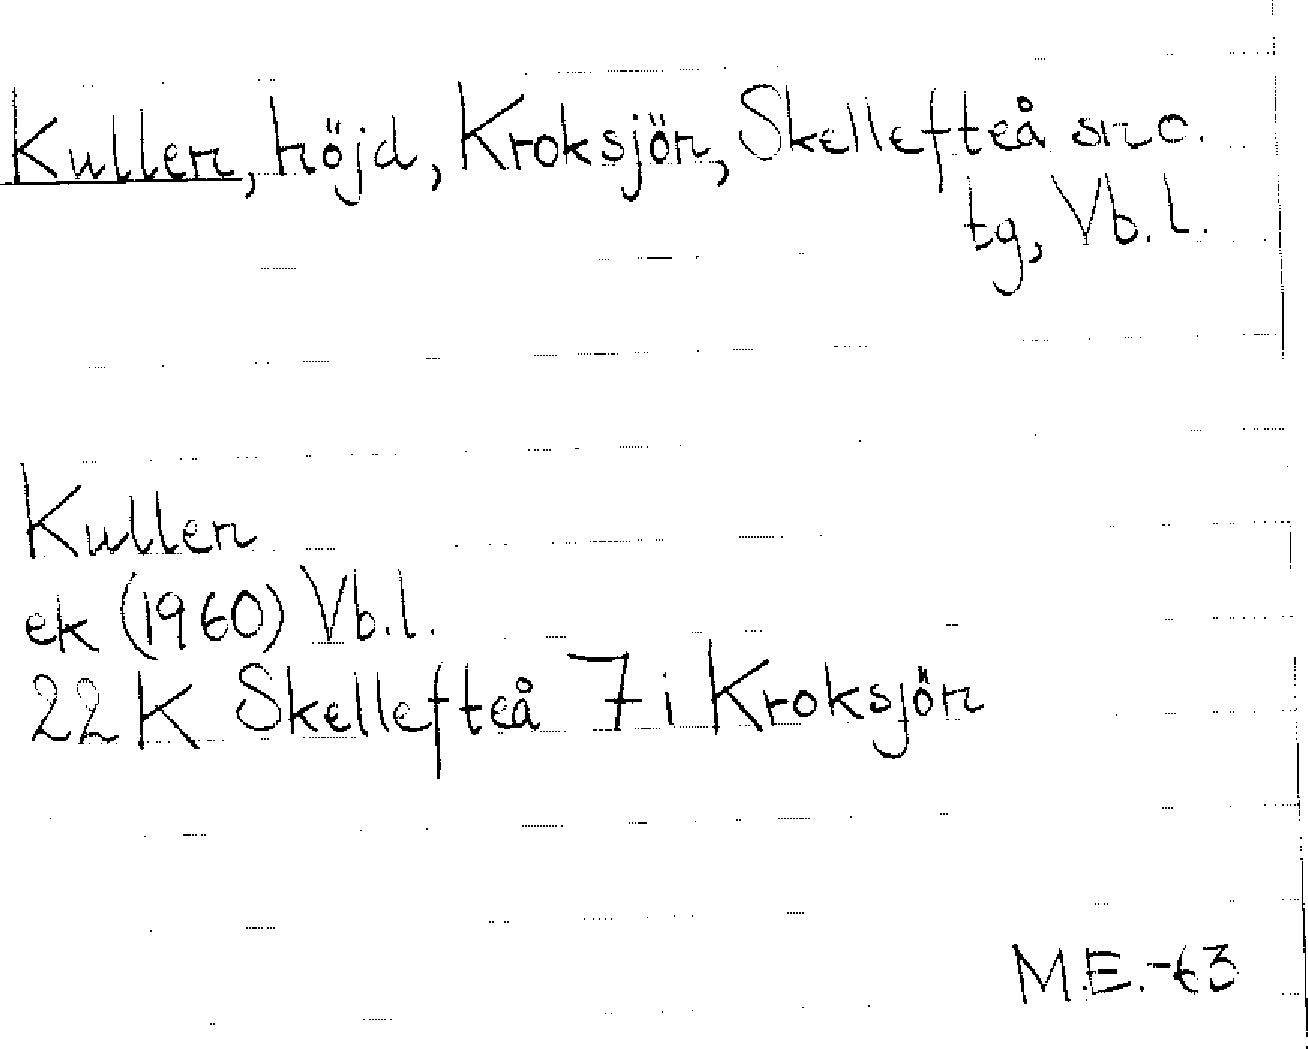 Kullen, höjd, Kroksjön, Skellefteå sn o.
tg, Vb.l.
Kullen
ek (1960) Vb.l.
22 K Skellefteå 7 i Kroksjön
M.E.-63